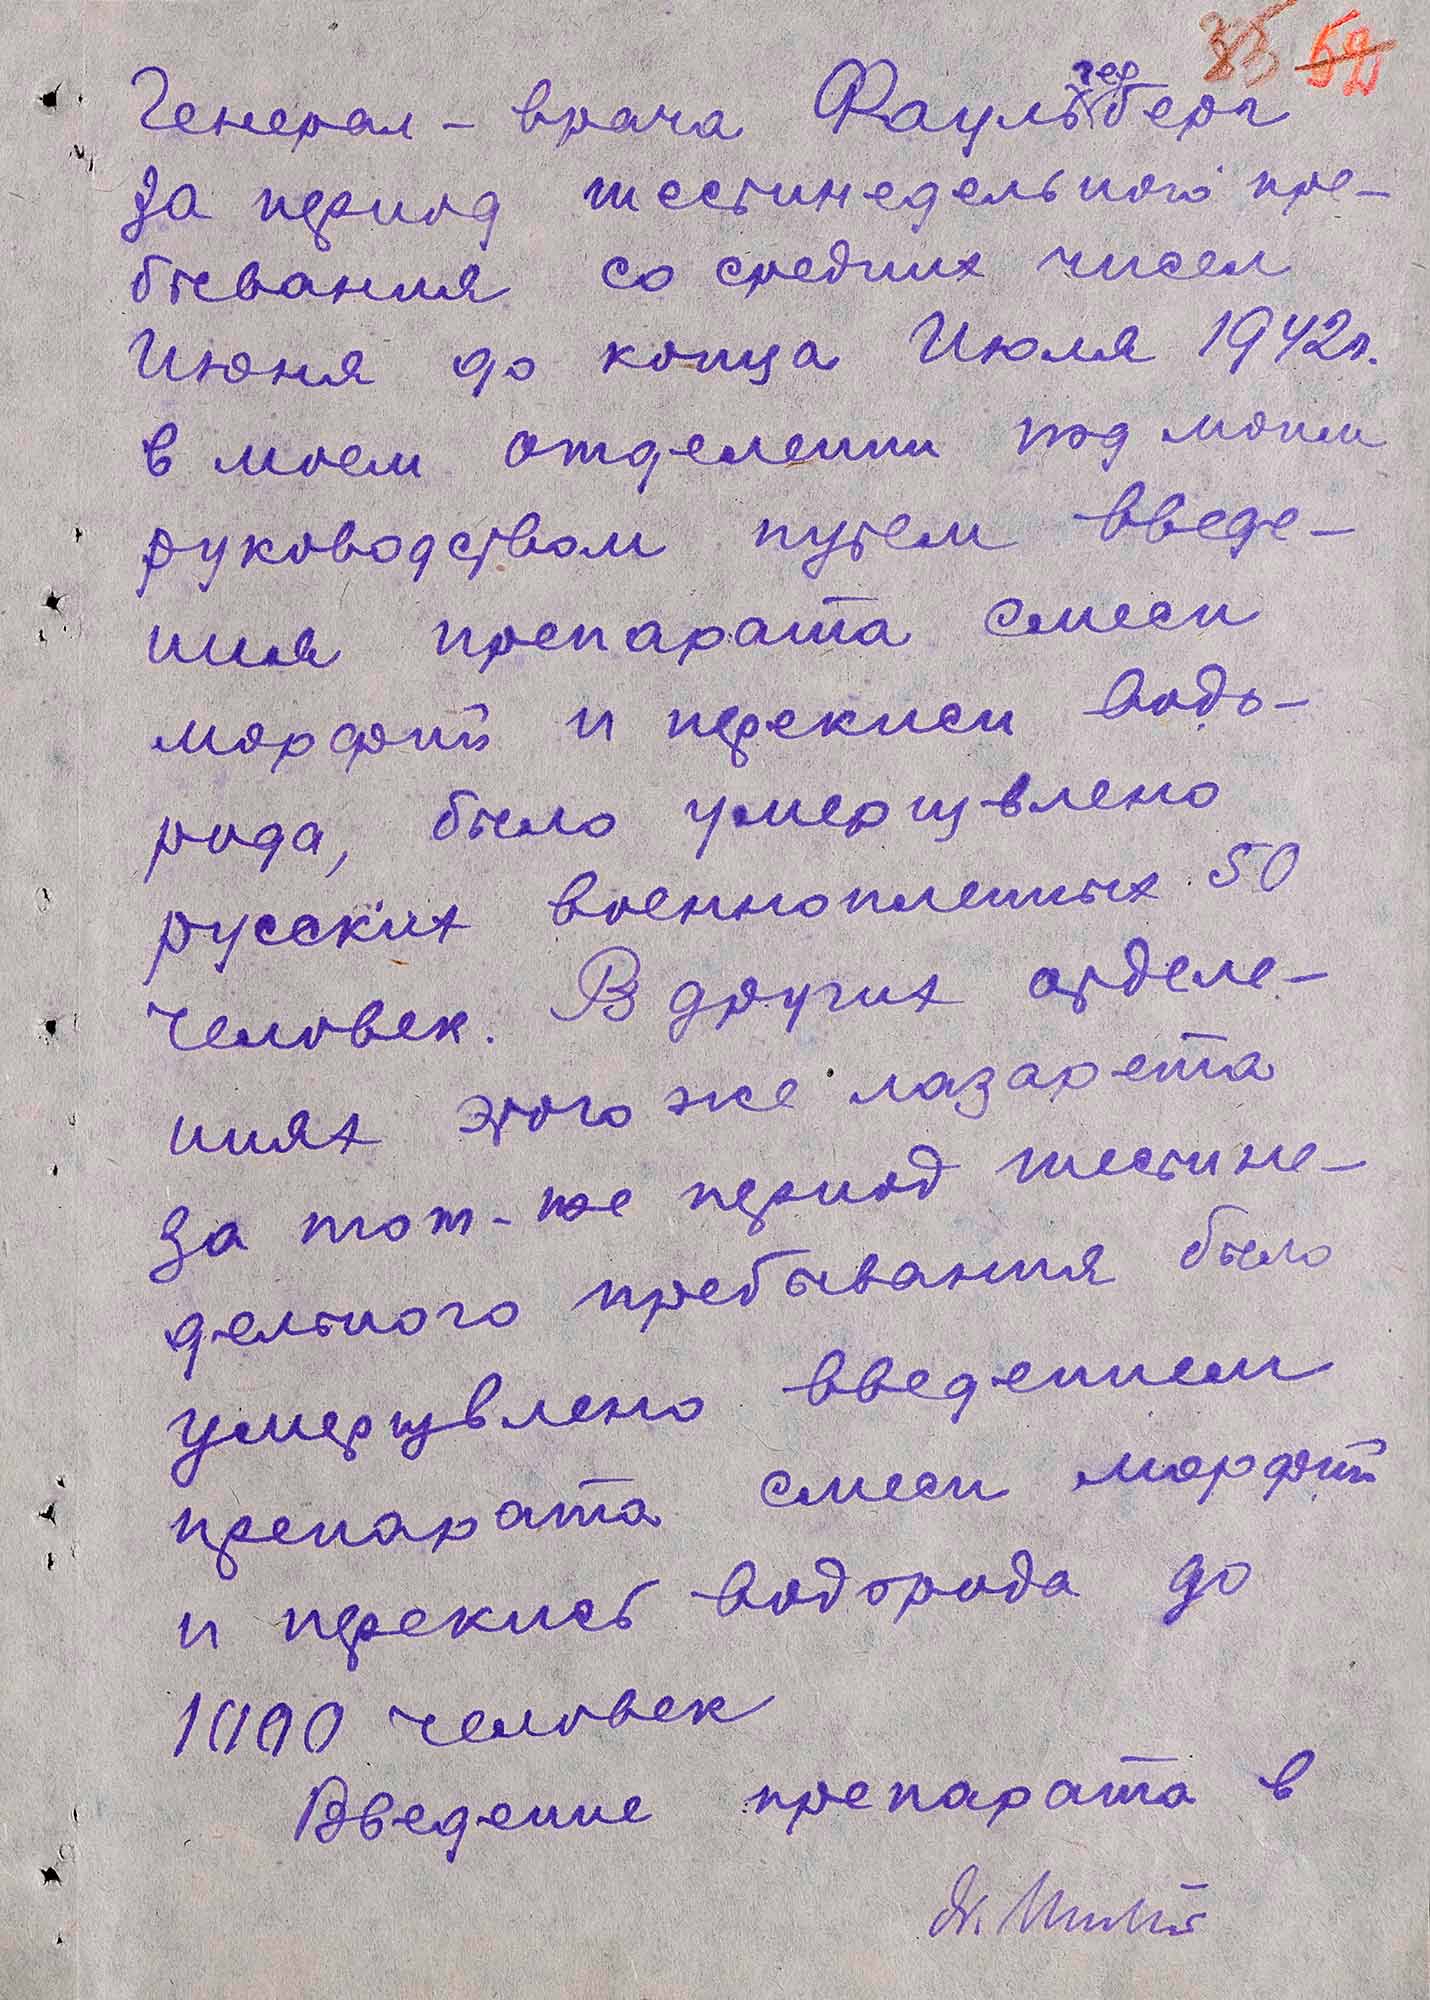 35 52
Генерал-врача Фаульгерберг
за период шестинедельного пре-
бывания со средних чисел
Июня до конца Июля 1942г.
в моем отделении под моим
руководством путем введе-
ния препарата смеси
морфий и перекиси водь-
рода, было умерщвлено
русских военнопленных 50
человек. В других отделе-
ниях этого же лазарета
за тот-же период шестине-
дельного пребывания было
умерщвлено введением
препарата смеси морфий
и перекись водорода до
1000 человек
Введение препарата в